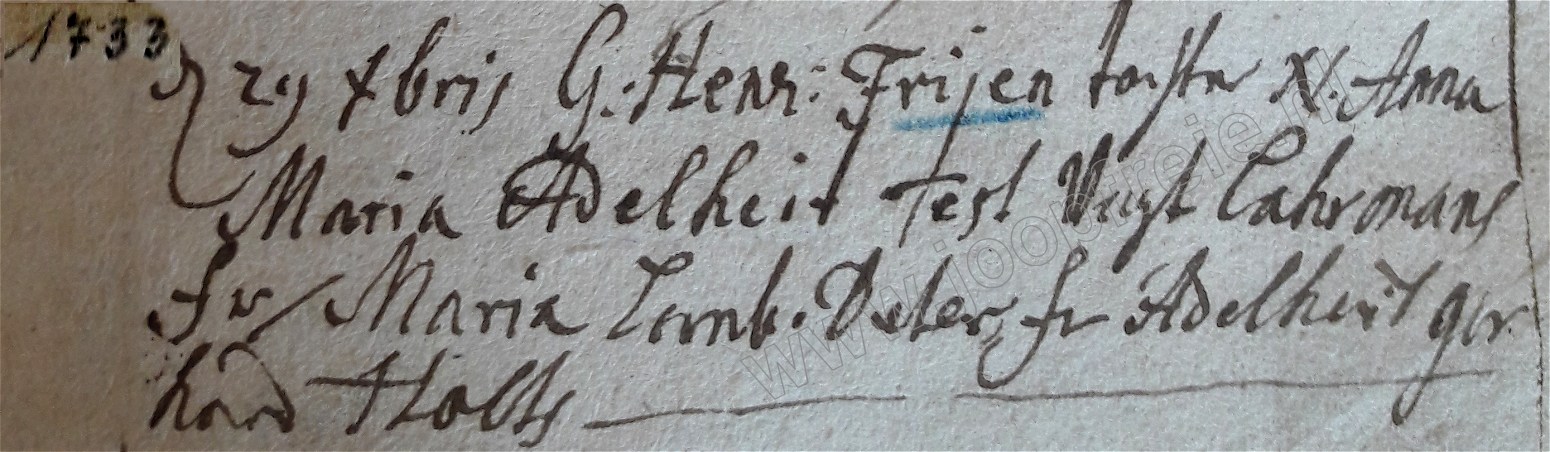 1733
29 xbris G: Henr: Frijen tochter N. Anna
Maria Adelheit Test Vogt Cahrmans
fr Maria Lamb. Deter, fr Adelheit ger
hard Holts
www.joopfreie.nl